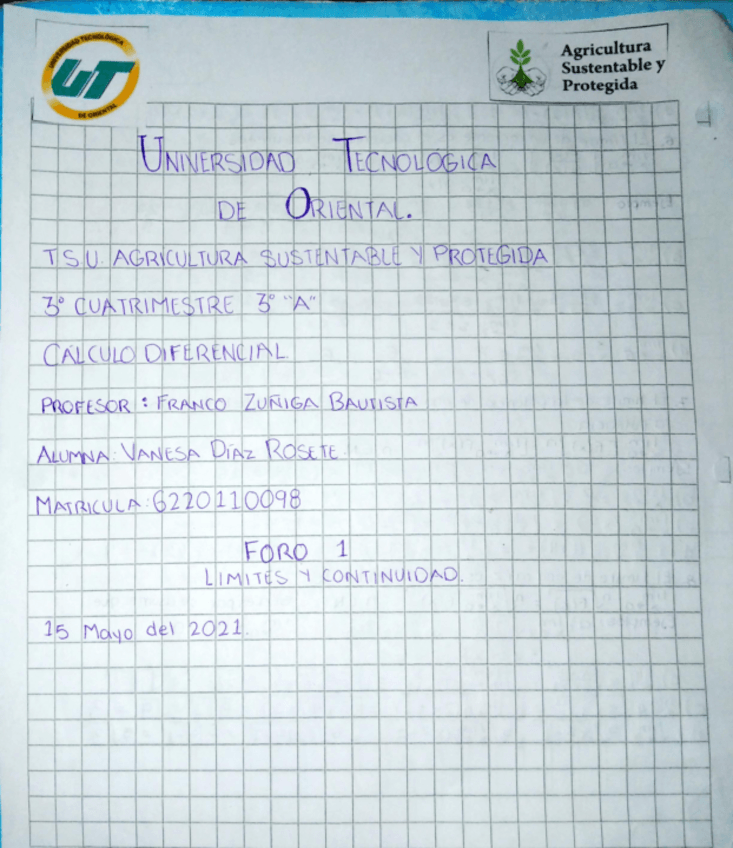 UNIVERSIDAD TECNOLÓGICA
DE ORIENTAL
UT
Agricultura
Sustentable y
Protegida
UNIVERSIDAD TECNOLOGICA
DE ORIENTAL.
T.S.U. AGRICULTURA SUSTENTABLE Y PROTEGIDA
3° CUATRIMESTRE 3° "A"
CÁLCULO DIFERENCIAL
PROFESOR : FRANCO ZUÑIGA BAUTISTA
ALUMNA: VANESA DÍAZ ROSETE.
MATRICULA: 6220110098
FORO 1
LIMITES Y CONTINUIDAD.
15 Mayo del 2021.